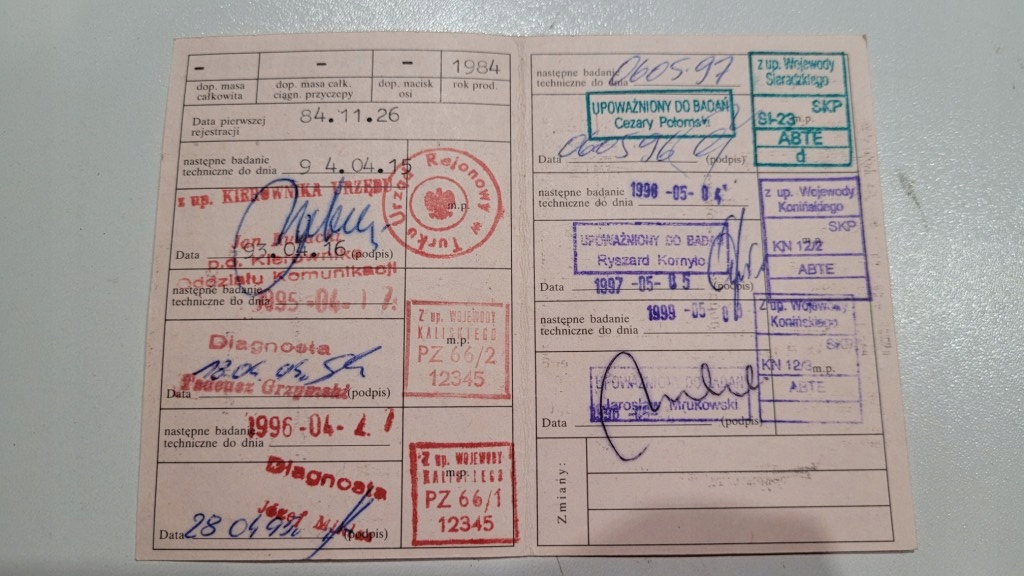 -
-
-
1984
dop. masa
całkowita
dop. masa całk.
ciągn. przyczepy
dop. nacisk
osi
rok prod.
Data pierwszej
rejestracji
84.11.26
następne badanie
techniczne do dnia
9 4.04.15
z up. KIEROWNIKA URZĘDU
Urząd Rejonowy w Turku
m.p.
Data
93.04.16
(podpis)
p.o. Kierownika
Oddziału Komunikacji
następne badanie
techniczne do dnia
1995-04-17
Z up. WOJEWODY
KALISKIEGO
m.p.
PZ 66/2
12345
Diagnosta
Tadeusz Grzymski
Data
(podpis)
następne badanie
techniczne do dnia
1996-04-
Z up. WOJEWODY
m.p.
KALISKIEGO
PZ 66/1
12345
Diagnosta
Józef
Data
28 04 95
(podpis)
następne badanie
techniczne do dnia
060597
z up. Wojewody
Sieradzkiego
SKP
SI-23
m.p.
ABTE
d
UPOWAŻNIONY DO BADAŃ
Cezary Potomski
Data
060596
(podpis)
następne badanie
techniczne do dnia
1998-05-0
z up. Wojewody
Konińskiego
SKP
KN 12/2
ABTE
UPOWAŻNIONY DO BADAŃ
Ryszard Kornyło
Data
1997-05-05
(podpis)
następne badanie
techniczne do dnia
1999-05-0
z up. Wojewody
Konińskiego
SKP
KN 12/3
m.p.
ABTE
UPOWAŻNIONY DO BADAŃ
Jarosław Mrukowski
Data
(podpis)
Zmiany: